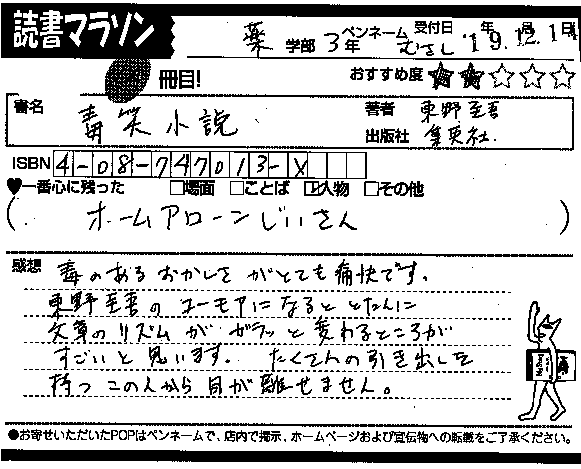 読書マラソン
薬 学部 3年 ペンネーム むさし 受付日 '19年.12月.1日
冊目!
おすすめ度 ★★☆☆☆
書名 毒笑小説
著者 東野圭吾
出版社 集英社
ISBN 4-08-747013-X
♥一番心に残った □場面 □ことば ☑人物 □その他
( ホームアローンじいさん )
感想 毒のあるおかしさがとても痛快です。
東野圭吾のユーモアになると とたんに
文章のリズムが ガラッと変わるところが
すごいと思います。 たくさんの引き出しを
持つこの人から目が離せません。
●お寄せいただいたPOPはペンネームで、店内で掲示、ホームページおよび宣伝物への転載をご了承ください。